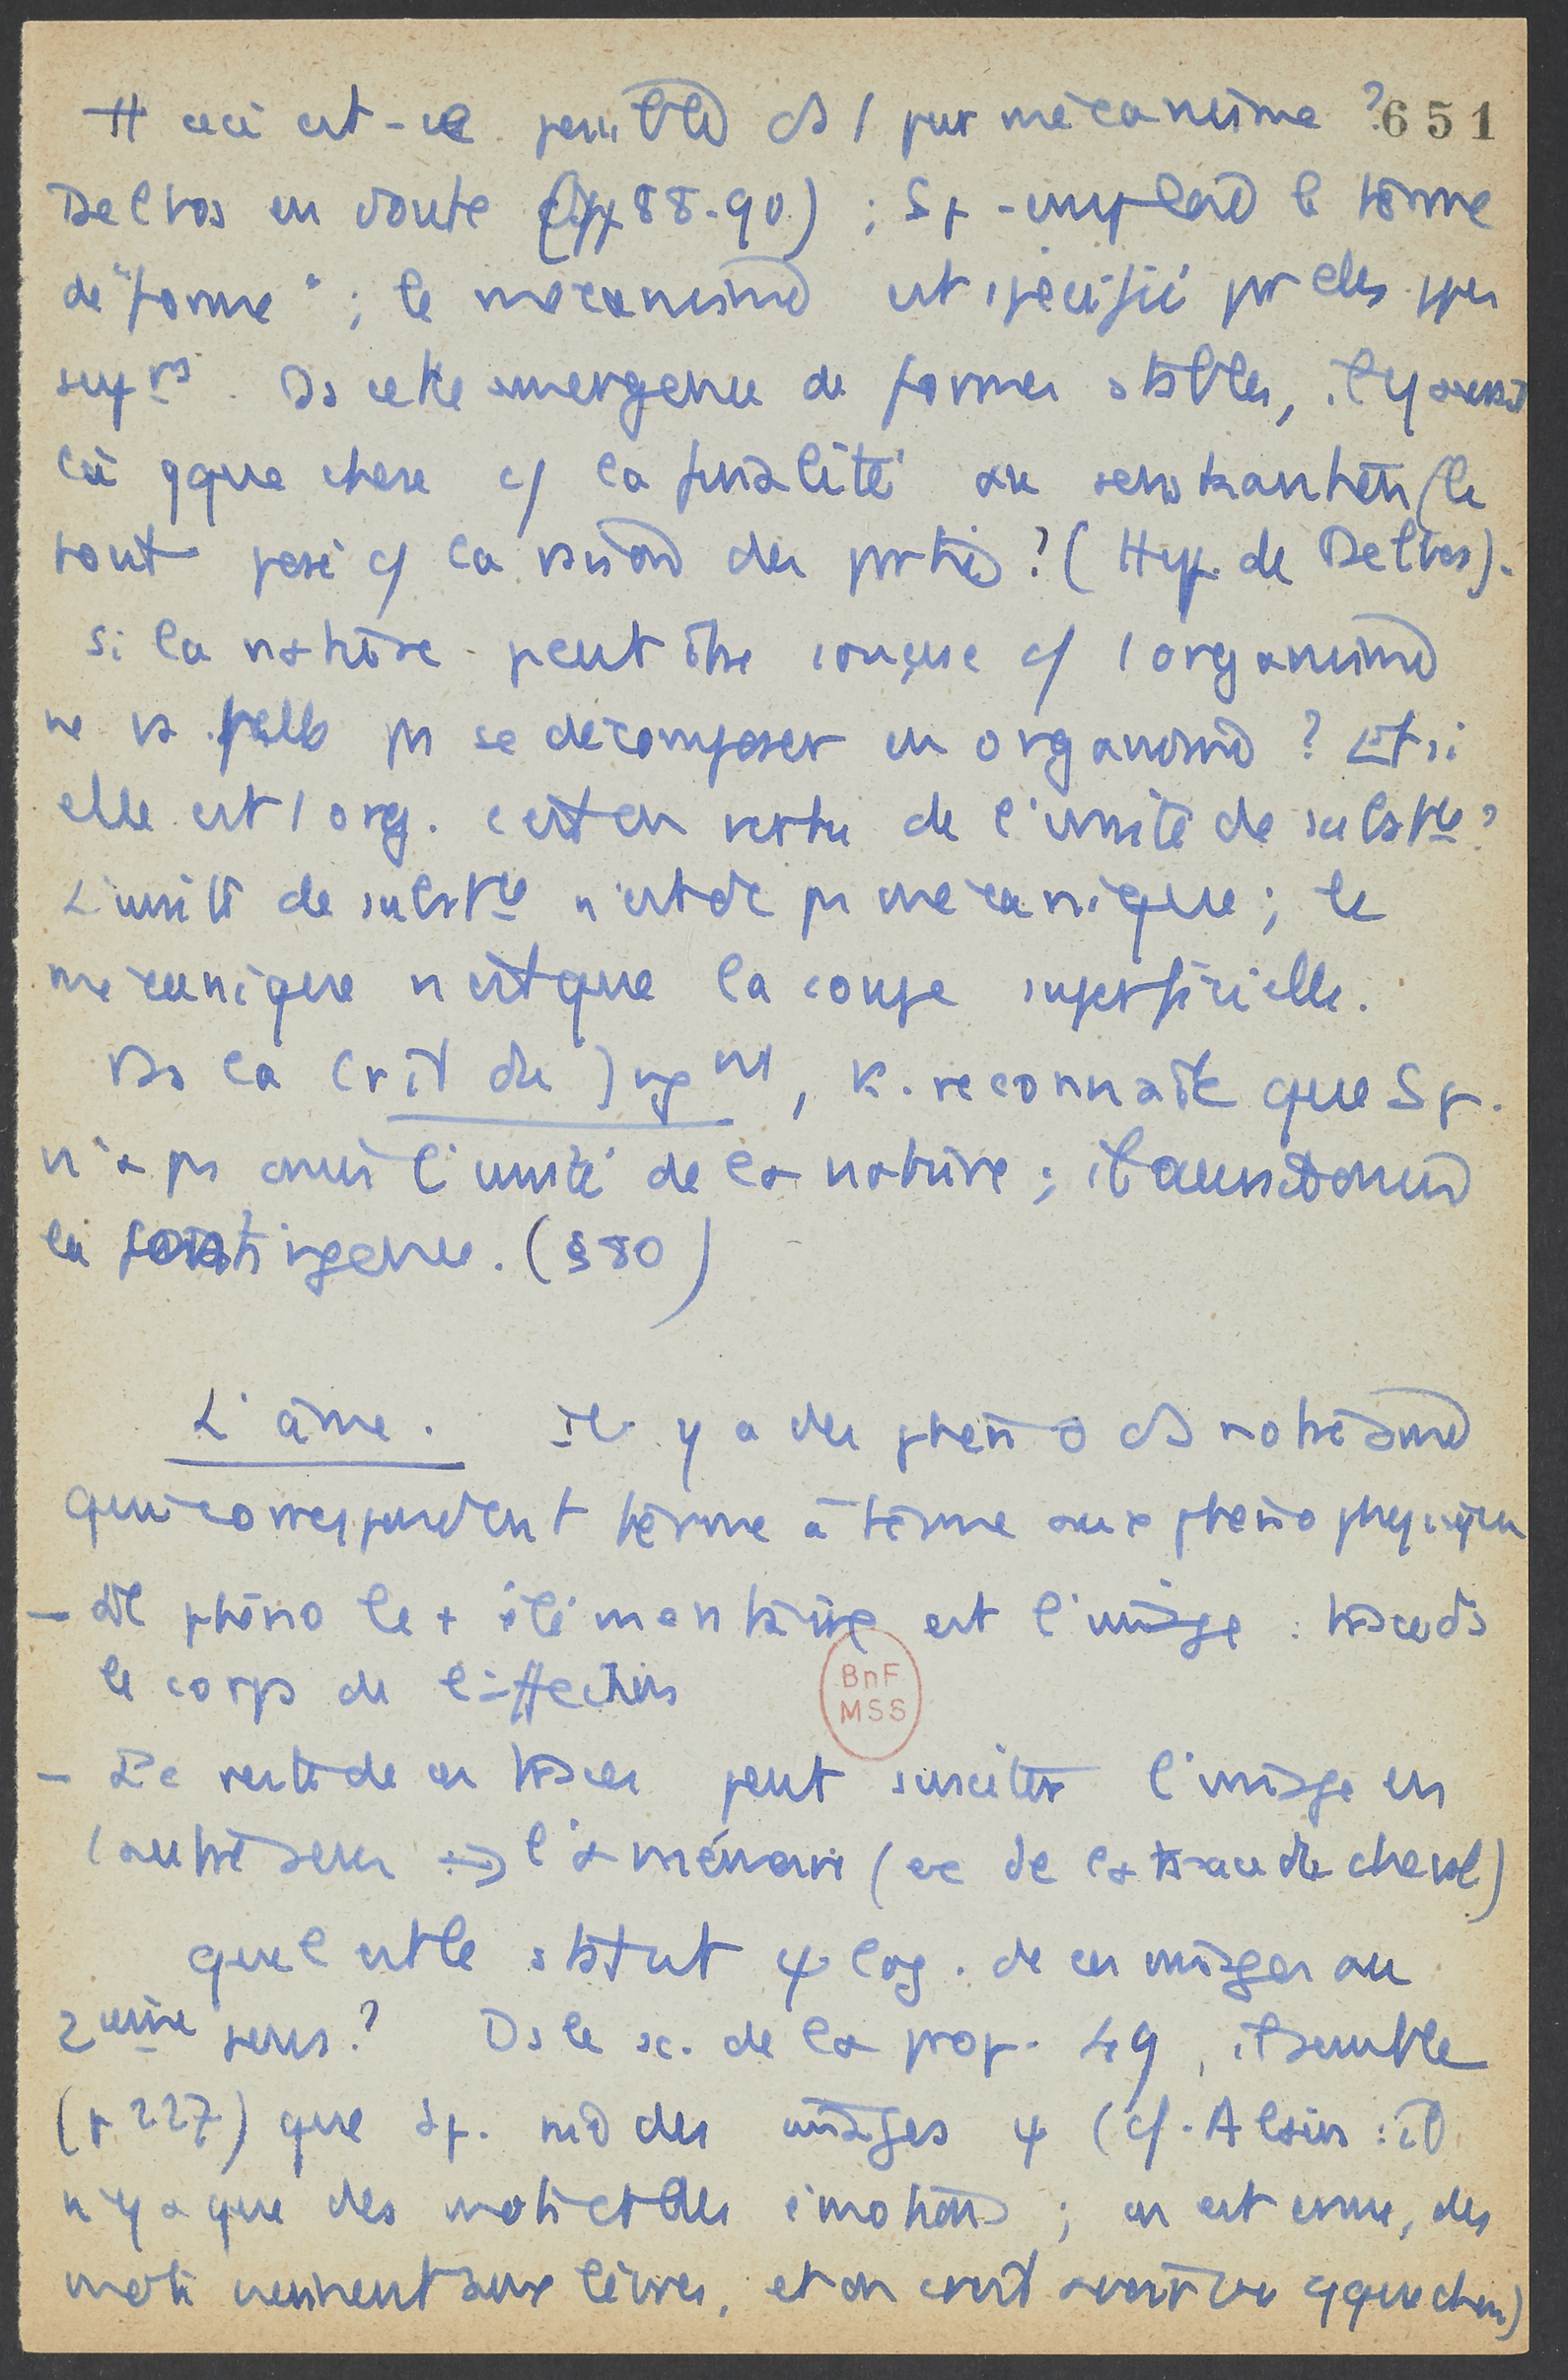 Tt ceci est-ce possible ds 1 pur mécanisme ? 651
Delbos en doute (pp 88-90) ; Sp. emploie le terme
de "forme" ; le mécanisme est spécifié par elles
Ds cette émergence de formes stables, il y aurait
là qque chose c/ la finalité au sens kantien (le
tout posé c/ la raison des parties ? (Hyp. de Delbos).
Si la nature peut être conçue c/ 1 organisme
ne va t'elle pas se décomposer en organisme ? Et si
elle est 1 org. c'est en vertu de l'unité de substce ?
L'unité de substce n'est dc pas mécanique ; le
mécanique n'est que la coupe superficielle.
Ds la Crit du Jugmt, K. reconnaît que Sp.
n'a pas omis l'unité de la nature ;
la contingence. (§ 80)
L'âme. Il y a des phéno ds notre âme
qui correspondent terme à terme aux phéno physiques
- Le phéno le + élémentaire est l'image : trace ds
le corps de l'affection
- Le reste de ces traces peut susciter l'image en
1 autre sens → la mémoire (ex de la trace du cheval)
Quel est le statut ψlog. de ces images au
2ème sens ? Ds le sc. de la prop. 49, il semble
(p 227) que Sp. nie des images ψ (cf. Alain : il
n'y a que des mots et des émotions ; on est ému, des
mots viennent aux lèvres, et on croit avoir vu qque chose)
BnF
MSS